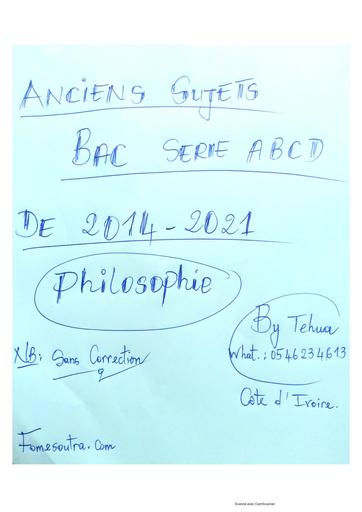 ANCIENS SUJETS
BAC SERIE ABCD
DE 2014-2021
Philosophie
By Tehua
What.: 0546234613
NB: Sans Correction
Côte d'Ivoire.
Fomesoutra.com
Scanné avec CamScanner